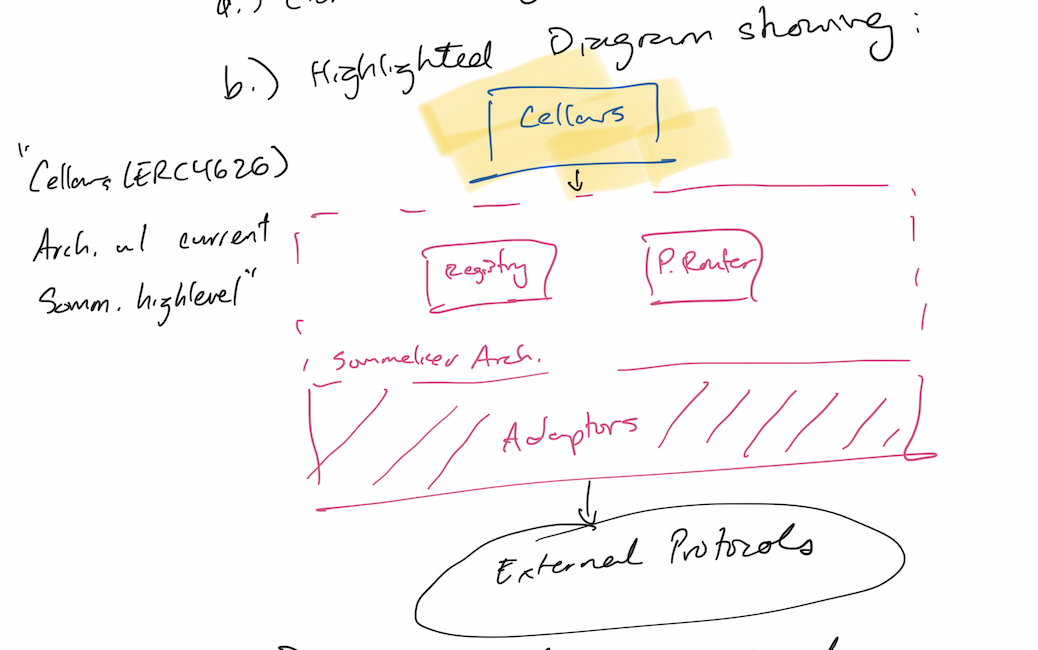 b.) Highlighted Diagram showing:
Cellars
"Cellars (ERC4626)
Arch. w/ current
Somm. highlevel"
Registry
P. Router
Sommelier Arch.
Adaptors
External Protocols